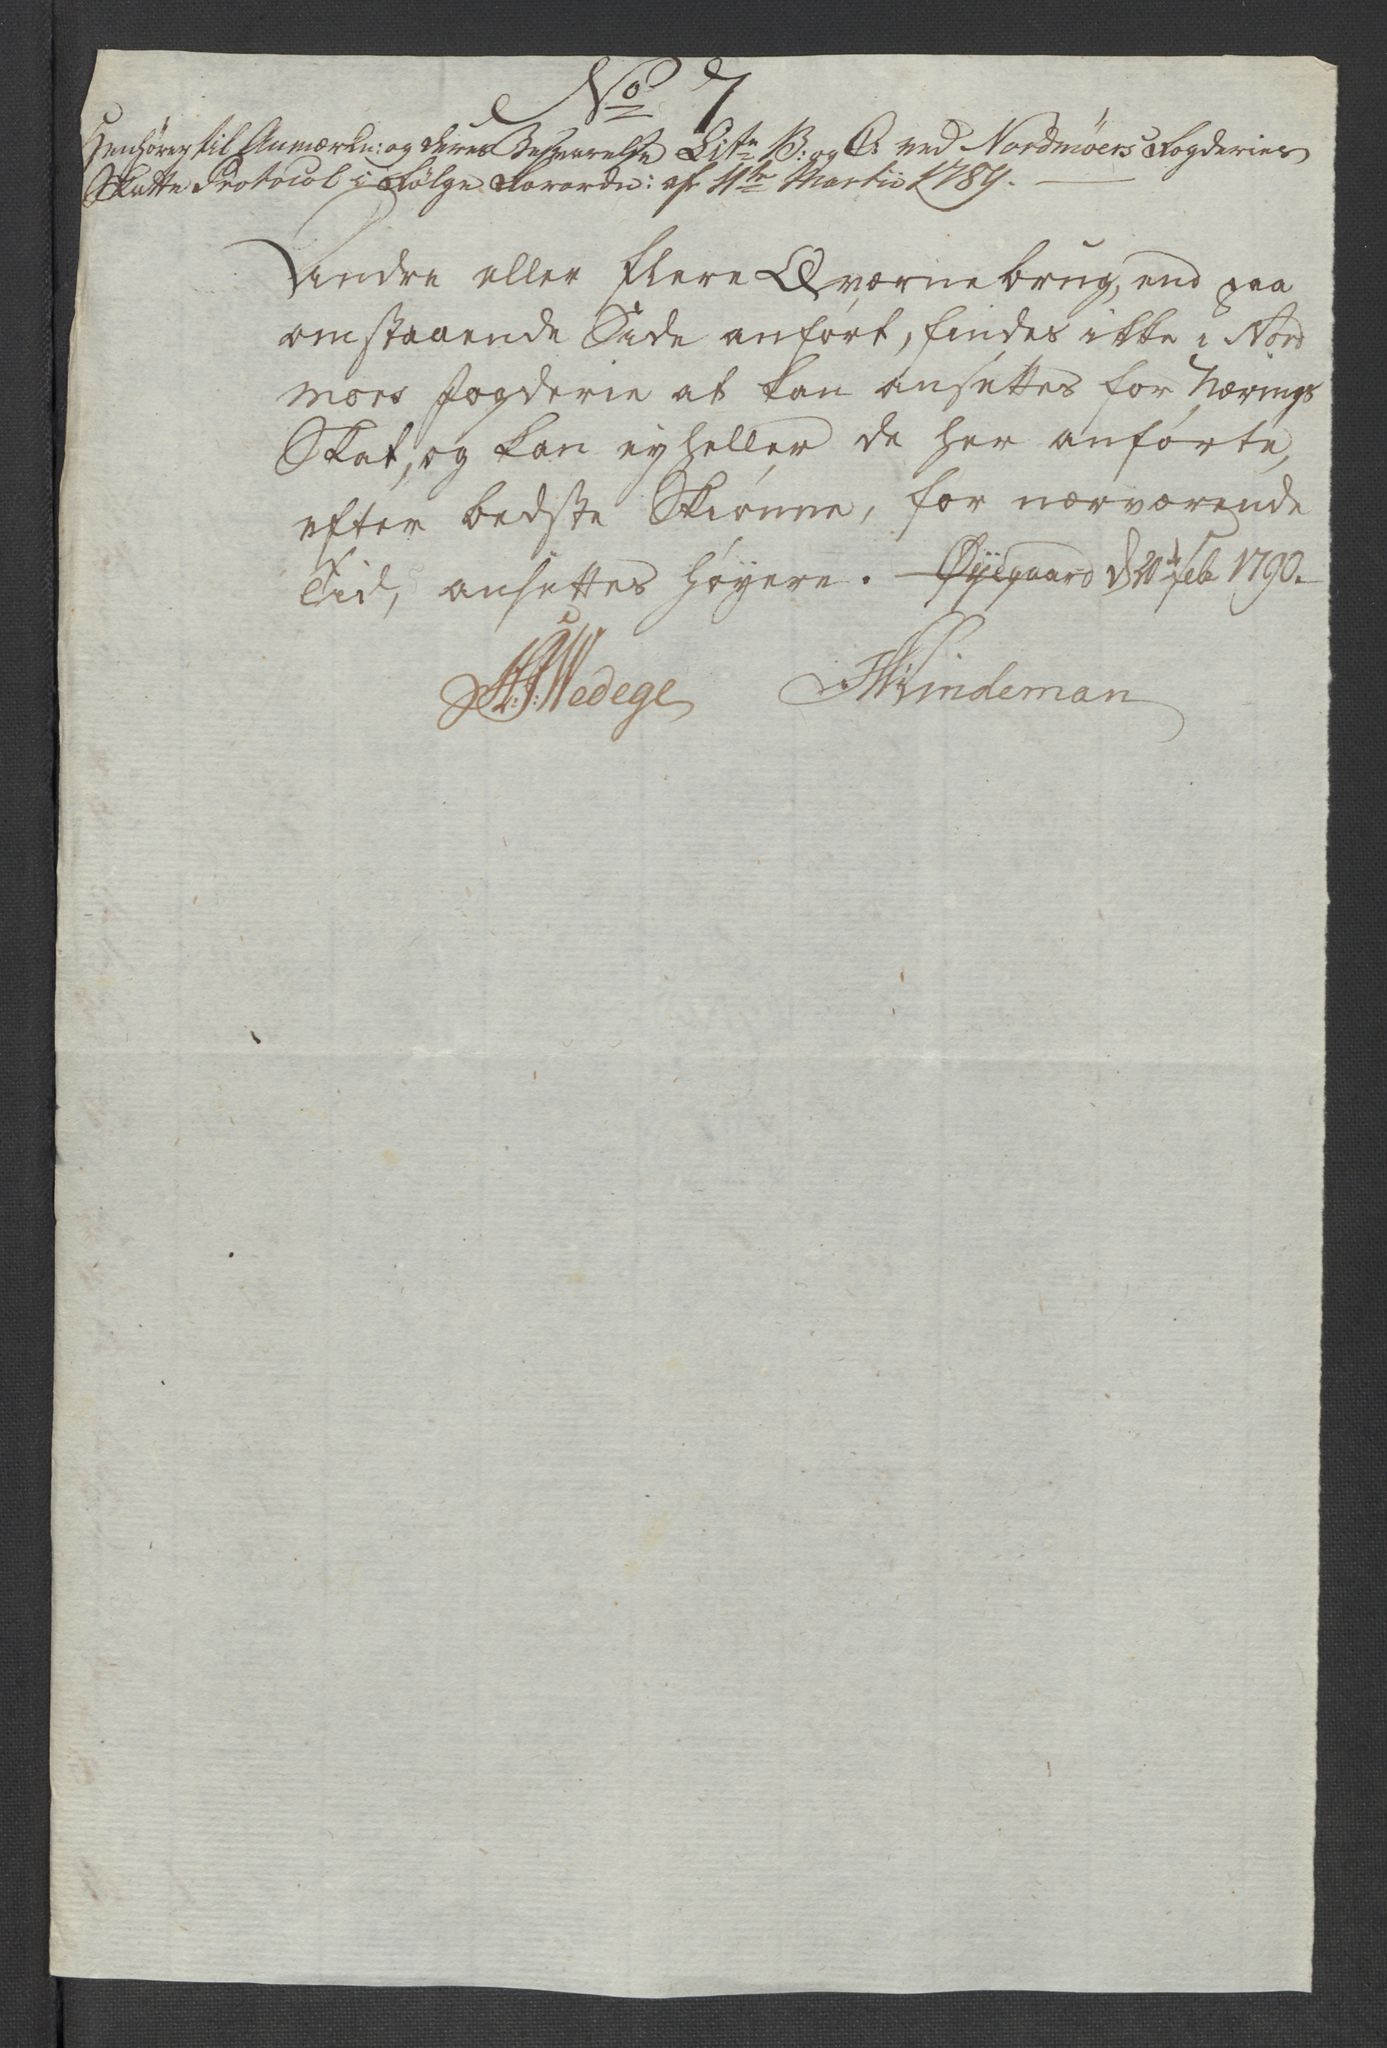 No 7
Henhører til Anmærkn: og deres Besvarelse Litr B: og C: ved Nordmøers Fogderies
Skatte Protocol i Følge Forordn: af 11te Martii 1789.
Andre eller flere Qværnebrug, end paa
omstaaende Side anført, findes ikke i Nord
møes Fogderie at kan ansettes for Nærings
Skat, og kan ey heller de her anførte,
efter bedste Skiønne, for nærværende
Tid, ansettes høyere. Øyegaard d 20 Feb 1790.
Wedege Lindeman